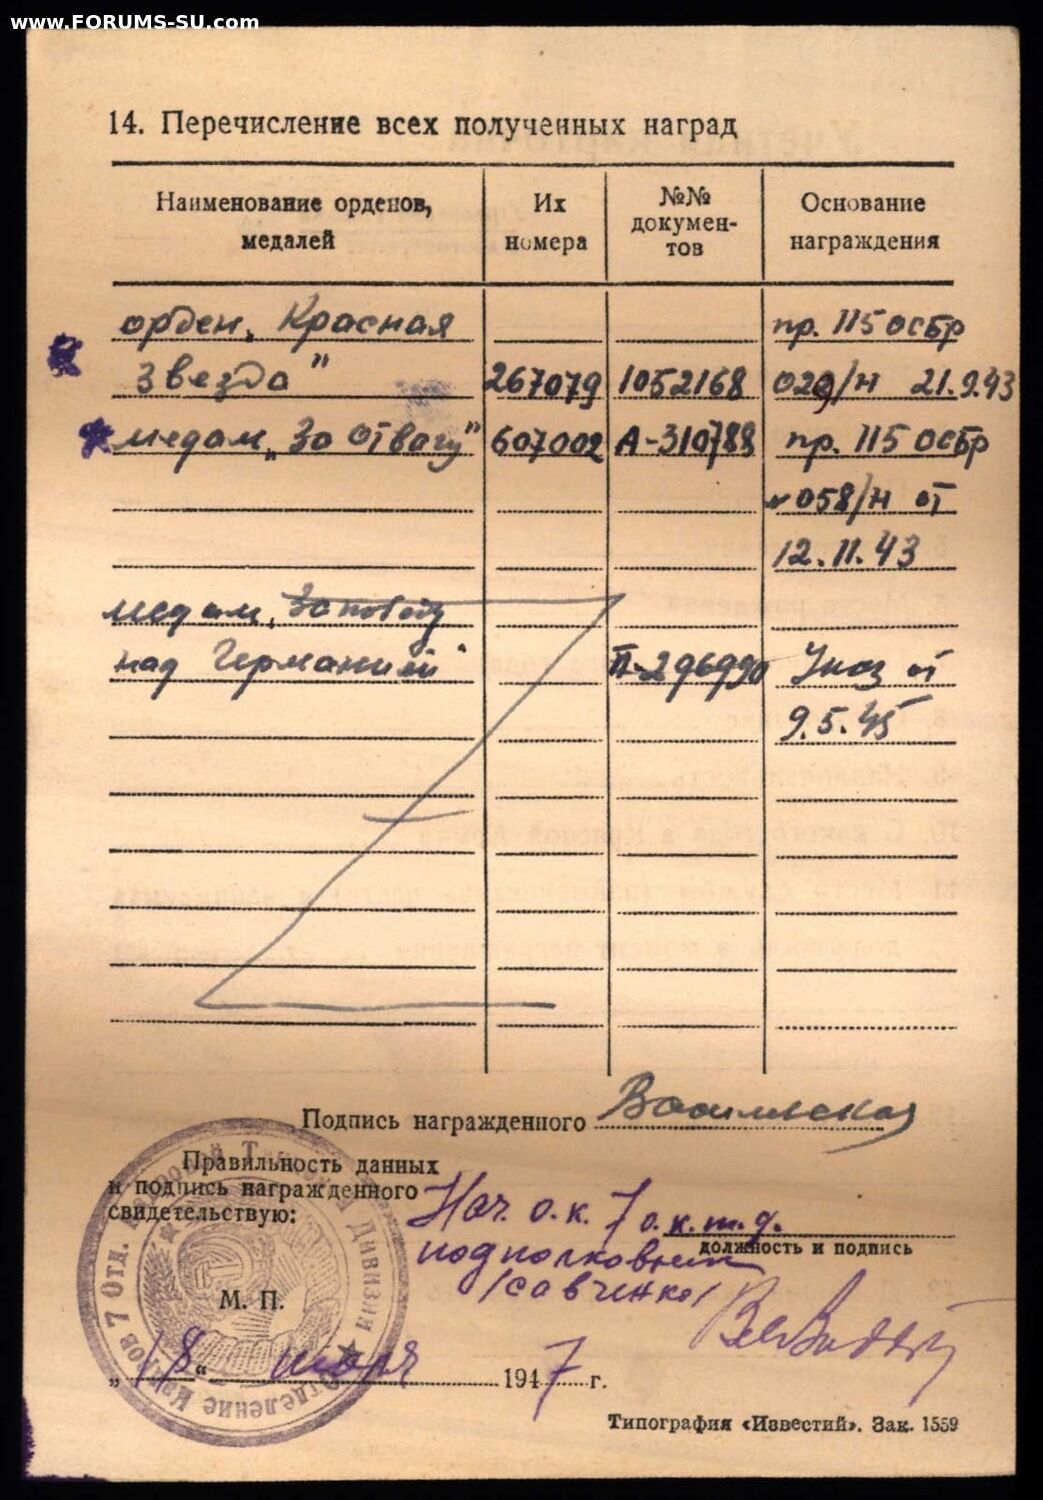 www.FORUMS-SU.com
14. Перечисление всех полученных наград
Наименование орденов, медалей
Их номера
№№ докумен-тов
Основание награждения
орден „Красная пр. 115 ОСБр
Звезда" 267079 1052168 020/н 21.9.43
медаль „За Отвагу" 607002 А-310788 пр. 115 ОСБр
058/н от
12.11.43
медаль „За победу
над Германией" Указ от
9.5.45
Подпись награжденного
Правильность данных
и подпись награжденного
свидетельствую:
Нач. о.к. 7 о.к.т.д.
должность и подпись
подполковник
/Савченко/
М. П.
„18" 1947 г.
Отделение Кадров 7 Отд. Дивизии
Типография «Известий». Зак. 1559